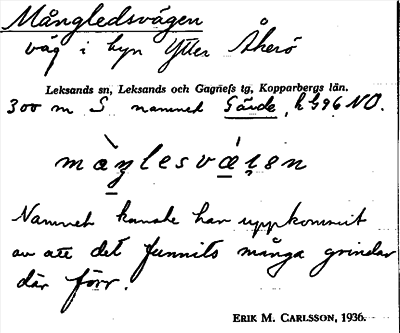 Mångledsvägen
väg i byn Ytter Åkerö
Leksands sn, Leksands och Gagnefs tg, Kopparbergs län.
300 m S namnet Gärde, k 696 NO.
Namnet kanske har uppkommit
av att det funnits många grindar
där förr.
ERIK M. CARLSSON, 1936.